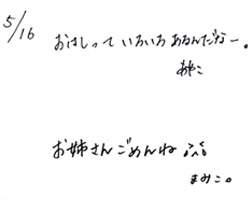 5/16
おはしって いろいろ あるんだなー。
あやこ
お姉さんごめんね
まみこ。